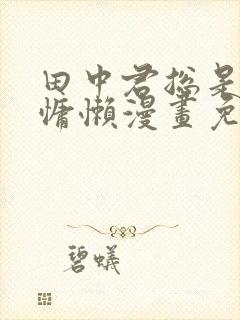 田中君总是
慵懒漫畫免
碧蟻